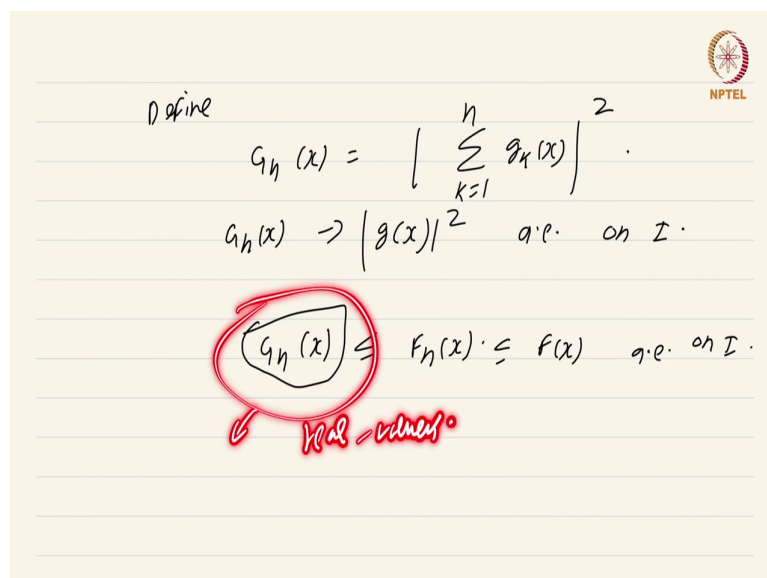 NPTEL
Define
Gₙ(x) = | ∑ₖ₌₁ⁿ gₖ(x) |² .
Gₙ(x) → |g(x)|² a.e. on I.
Gₙ(x) ≤ Fₙ(x) . ≤ F(x) a.e. on I.
real-valued.